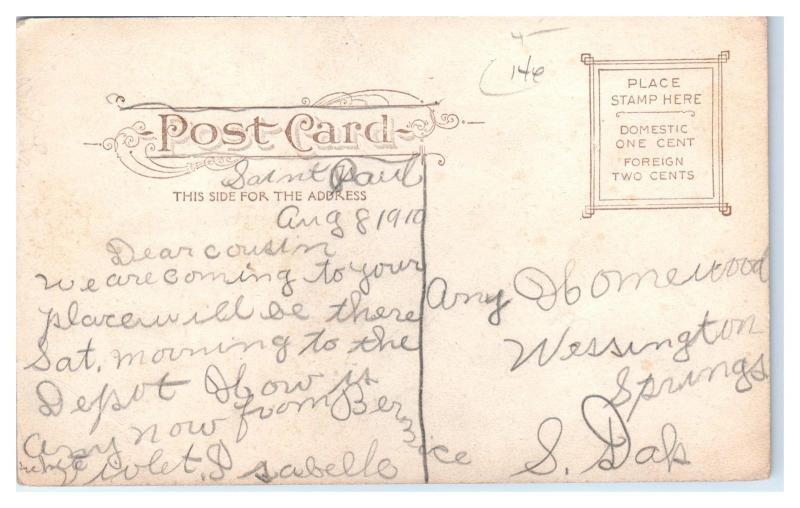 4
14¢
PLACE
STAMP HERE
DOMESTIC
ONE CENT
FOREIGN
TWO CENTS
Post Card
THIS SIDE FOR THE ADDRESS
Saint Paul
Aug 8 1910
Dear cousin
we are coming to your
place will be there
Sat, morning to the
Depot How is
any now from Bernice
Violet, Isabelle
Amy Homewood
Wessington
Springs
S. Dak